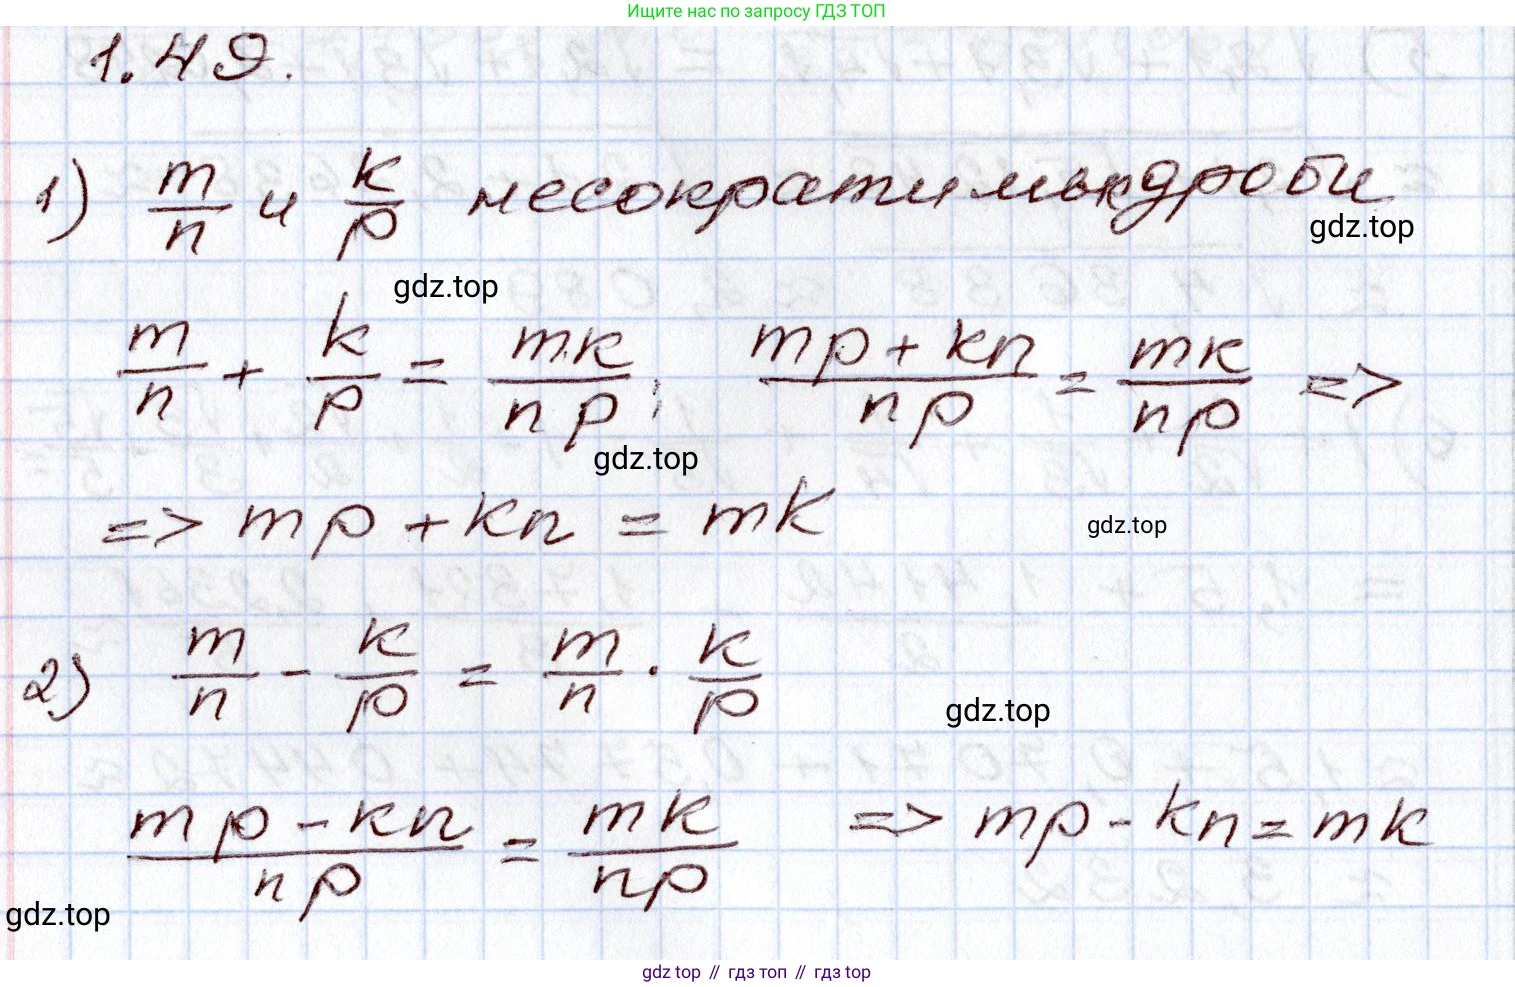 Ищите нас по запросу ГДЗ ТОП
1.49.
1) m/n и k/p несократимые дроби
gdz.top
gdz.top
m/n + k/p = mk/np; (mp + kn)/np = mk/np =>
gdz.top
=> mp + kn = mk
gdz.top
2) m/n - k/p = m/n · k/p
gdz.top
(mp - kn)/np = mk/np => mp - kn = mk
gdz.top
gdz top // гдз топ // гдз top